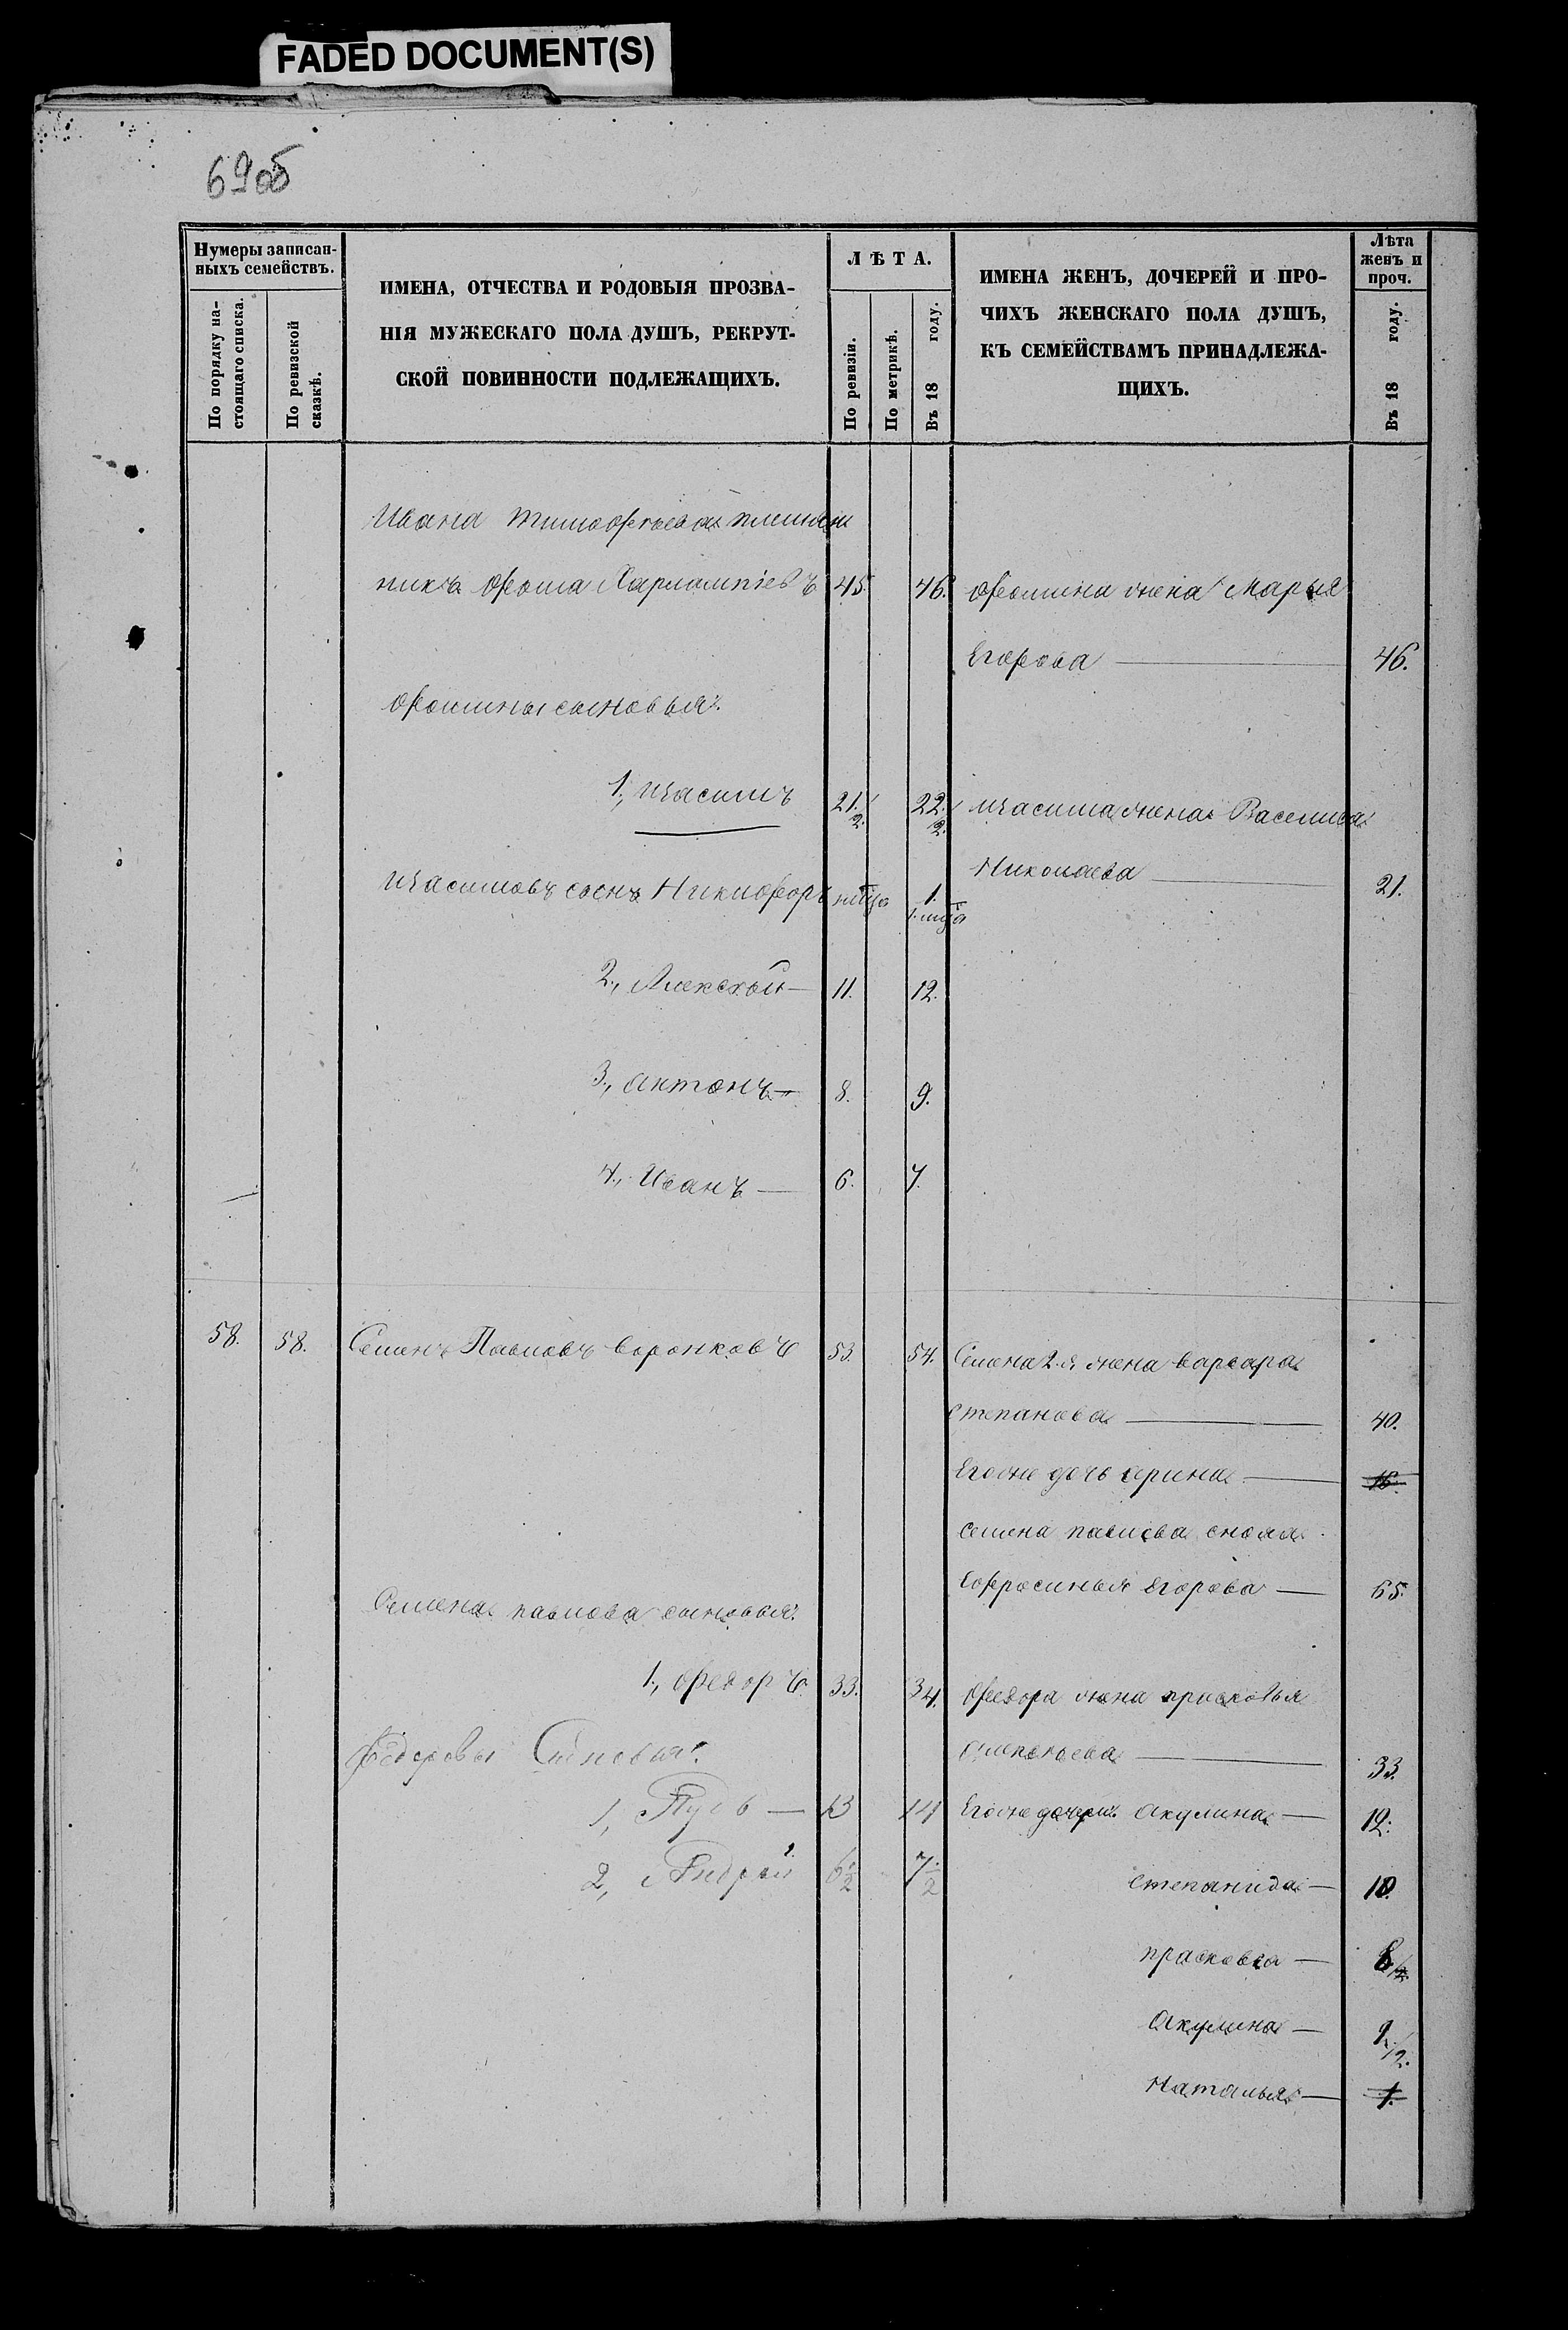 FADED DOCUMENT(S)
69об
Нумеры записан-
ныхъ семействъ.
По порядку на-
стоящаго списка.
По ревизской
сказкѣ.
ИМЕНА, ОТЧЕСТВА И РОДОВЫЯ ПРОЗВА-
НІЯ МУЖЕСКАГО ПОЛА ДУШЪ, РЕКРУТ-
СКОЙ ПОВИННОСТИ ПОДЛЕЖАЩИХЪ.
ЛѢТА.
По ревизіи.
По метрикѣ.
Въ 18 году.
ИМЕНА ЖЕНЪ, ДОЧЕРЕЙ И ПРО-
ЧИХЪ ЖЕНСКАГО ПОЛА ДУШЪ,
КЪ СЕМЕЙСТВАМЪ ПРИНАДЛЕЖА-
ЩИХЪ.
Лѣта
женъ и
проч.
Въ 18 году.
Ивана Тимофѣева племян
никъ Фома Харлампіевъ 45. 46. Фомина жена Марья
Егорова — 46.
Фомины сыновья:
1., Иасимъ 21. 1/2. 22. 1/2. Иасима жена Василиса
Николаева — 21.
Иасимовъ сынъ Никифоръ 1.
2., Алексѣй — 11. 12.
3., Антонъ — 8. 9.
4., Иванъ — 6. 7.
58. 58. Семенъ Павловъ Воронковъ 53. 54. Семена 2-я жена Варвара
Степанова — 40.
Его же дочь Арина — 16.
Семена Павлова сноха
Ефросинья Егорова — 65.
Семена Павлова сыновья:
1., Федоръ 33. 34. Федора жена Прасковья
33.
Федоровы Сыновья:
1, 13 14 Его же дочери: Акулина — 12.
2, Андрей 6 1/2 7 1/2 Степанида — 10.
Прасковья — 8 1/2.
Акулина — 9 1/2.
Наталья — 1.